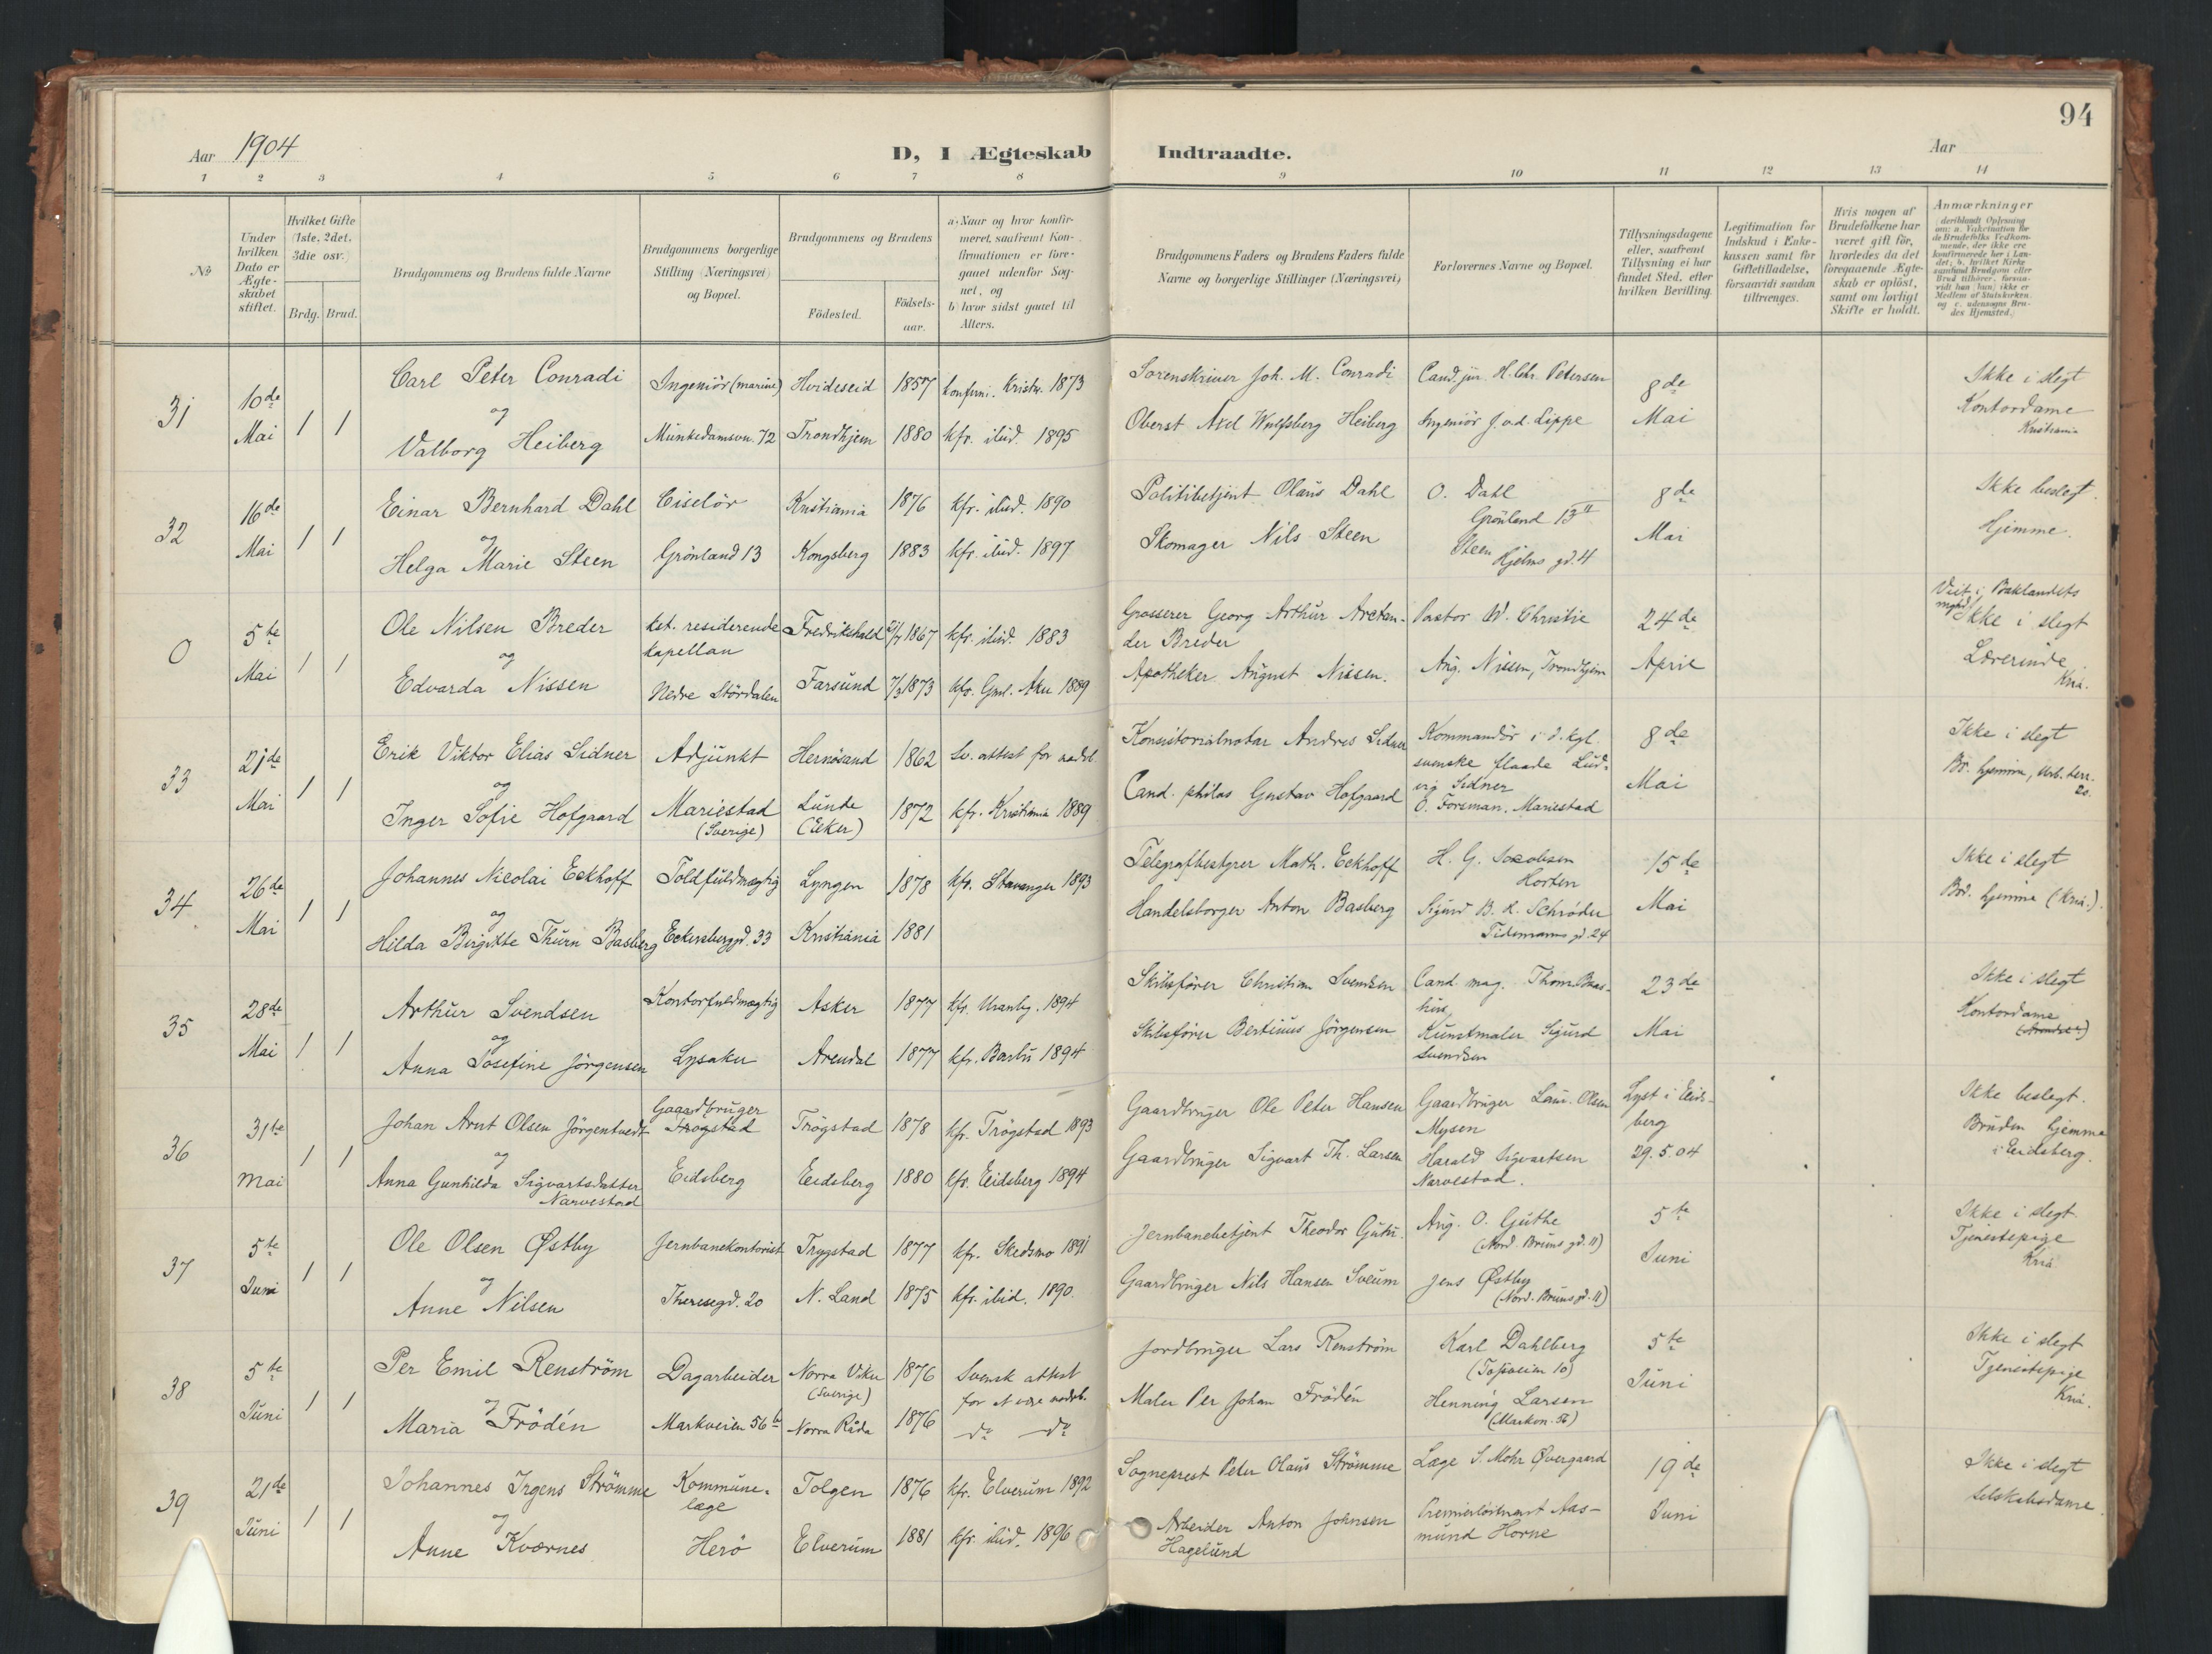 94
Aar 1904
D, I Ægteskab Indtraadte.
Aar
1 2 3 4 5 6 7 8 9 10 11 12 13 14
No
Under hvilken Dato er Ægteskabet stiftet.
Hvilket Gifte (1ste, 2det, 3die osv.)
Brdg. Brud.
Brudgommens og Brudens fulde Navne
Brudgommens borgerlige Stilling (Næringsvei) og Bopæl.
Brudgommens og Brudens
Födested.
Födsels-aar.
a) Naar og hvor konfirmeret, saafremt Konfirmationen er foregaaet udenfor Sognet, og
b) hvor sidst gaaet til Alters.
Brudgommens Faders og Brudens Faders fulde Navne og borgerlige Stillinger (Næringsvei)
Forlovernes Navne og Bopæl.
Tillysningsdagene eller, saafremt Tillysning ei har fundet Sted, efter hvilken Bevilling.
Legitimation for Indskud i Enkekassen samt for Giftetilladelse, forsaavidt saadan tiltrænges.
Hvis nogen af Brudefolkene har været gift för, hvorledes da det foregaaende Ægteskab er oplöst, samt om lovligt Skifte er holdt.
Anmærkninger
(deriblandt Oplysning om: a. Vakcination for de Brudefolks Vedkommende, der ikke ere konfirmerede her i Landet; b. hvilket Kirkesamfund Brudgom eller Brud tilhörer, forsaavidt han (hun) ikke er Medlem af Statskirken, og c. udensogns Brudes Hjemsted.)
31
10de
Mai
1 1
Carl Peter Conradi
og
Valborg Heiberg
Ingeniör (marine)
Munkedamsvn. 72
Hvideseid
Trondhjem
1857
1880
konfirm. Kristn. 1873
kfr. ibid. 1895
Sorenskriver Joh. M. Conradi
Oberst Axel Wulfsberg Heiberg
Cand. jur. H. Chr. Petersen
Ingeniör J. v.d. Lippe
8de
Mai
Ikke i slegt
Kontordame
Kristiania
32
16de
Mai
1 1
Einar Bernhard Dahl
og
Helga Marie Steen
Ciselör
Grönland 13
Kristiania
Kongsberg
1876
1883
kfr. ibid. 1890
kfr. ibid. 1897
Politibetjent Olaus Dahl
Skomager Nils Steen
O. Dahl
Grönland 13 II
Steen
Hjelms gd. 4
8de
Mai
Ikke beslegt.
Hjemme.
0
5te
Mai
1 1
Ole Nilsen Breder
og
Edvarda Nissen
kst. residerende
kapellan
Nedre Stördalen
Fredrikshald
Farsund
1867
1873
kfr. ibid. 1883
kfr. Gml. Aker 1889
Grosserer Georg Arthur Arctander Breder
Apotheker August Nissen.
Pastor W. Christie
Aug. Nissen, Trondhjem
24de
April
Viet i Baklandets
Ikke i slegt
Lærerinde
Kria.
33
21de
Mai
1 1
Erik Viktor Elias Sidner
og
Inger Sofie Hofgaard
Adjunkt
Mariestad
(Sverige)
Hernösand
Lunde
(Eker)
1862
1872
Sv. attest for nadv.
kfr. Kristiania 1889
Konsistorialnotar Andres Sidner
Cand. philos Gustav Hofgaard
Kommandör i d. kgl.
svenske flaade Ludvig Sidner
O. Forsman. Mariestad
8de
Mai
Ikke i slegt
34
26de
Mai
1 1
Johannes Nicolai Eckhoff
og
Hilda Birgitte Thurn Basberg
Toldfuldmægtig
Eckersberggd. 33
Lyngen
Kristiania
1878
1881
kfr. Stavanger 1893
Telegrafbestyrer Math. Eckhoff
Handelsborger Anton Basberg
H. G. Jacobsen
Horten
Sigurd B. R. Schröder
Tidemands gd. 24
15de
Mai
Ikke i slegt
Brd. hjemme (Kria.).
35
28de
Mai
1 1
Arthur Svendsen
og
Anna Josefine Jörgensen
Kontorfuldmægtig
Lysaker
Asker
Arendal
1877
1877
kfr. Uranbg. 1894
kfr. Barbu 1894
Skibsförer Christian Svendsen
Skibsförer Bertinius Jörgensen
Cand. mag. Thom
Kunstmaler Sigurd
Svendsen
23de
Mai
Ikke i slegt
Kontordame
36
31te
Mai
1 1
Johan Arnt Olsen Jörgentvedt
og
Anna Gunhilda Sigvartsdatter
Narvestad
Gaardbruger
Trögstad
Eidsberg
Trögstad
Eidsberg
1878
1880
kfr. Trögstad 1893
kfr. Eidsberg 1894
Gaardbruger Ole Peter Hansen
Gaardbruger Sigvart Th. Larsen
Gaardbruger Laur. Olsen
Mysen
Harald Sigvartsen
Narvestad.
Lyst i Eidsberg
29.5.04
Ikke beslegt.
Bruden hjemme
i Eidsberg.
37
5te
Juni
1 1
Ole Olsen Østby
og
Anne Nilsen
Jernbanekontorist
Theresegd. 20
Trygstad
N. Land
1877
1875
kfr. Skedsmo 1891
kfr. ibid. 1890.
Jernbanebetjent Theodor
Gaardbruger Nils Hansen Sveum
Aug. O. Guthe
(Nord. Bruns gd. 11)
Jens Østby
(Nord. Bruns gd. 11)
5te
Juni
Ikke i slegt
Tjenestepige
Kria
38
5te
Juni
1 1
Per Emil Renström
og
Maria Frödén
Dagarbeider
Markveien 56b
Norra Viker
(Sverige)
Norra Råda
1876
1876
Svensk attest
do do
Jordbruger Lars Renström
Maler Per Johan Frödén
Karl Dahlberg
Henning Larsen
(Markvn. 56)
5te
Juni
Ikke i slegt
Tjenestepige
Kria.
39
21de
Juni
1 1
Johannes Irgens Strömme
og
Anne Kværnes
Kommunelæge
Herö
Tolgen
Elverum
1876
1881
kfr. Elverum 1892
kfr. ibid. 1896
Sogneprest Peter Olaus Strömme
Arbeider Anton Johnsen
Hagelund
Læge S. Mohr Øvergaard
Premierlöitnant Aasmund Horne
19de
Juni
Ikke i slegt
Selskabsdame.